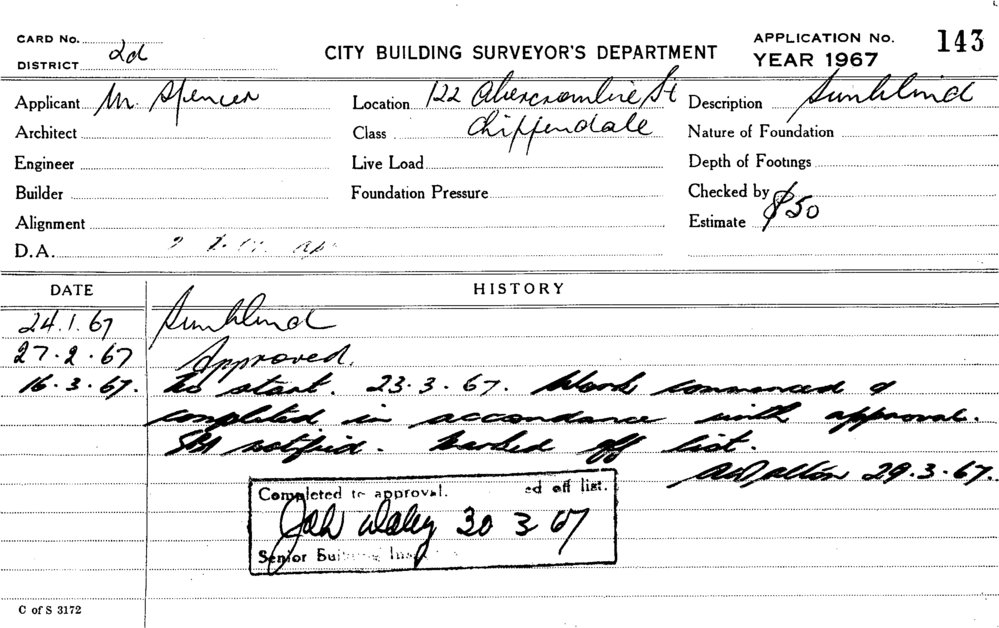 CARD No. 2d
DISTRICT
CITY BUILDING SURVEYOR'S DEPARTMENT
APPLICATION No. 143
YEAR 1967
Applicant M. Spencer
Location 122 Abercrombie St
Description Sunblind
Architect
Class Chippendale
Nature of Foundation
Engineer
Live Load
Depth of Footings
Builder
Foundation Pressure
Checked by
Alignment
Estimate $50
D.A.
DATE HISTORY
24.1.67 Sunblind
27.2.67 Approved.
16.3.67. To start. 23.3.67. Work commenced &
completed in accordance with approval.
notified. Marked off list.
29.3.67.
Completed to approval. ed off list.
30 3 67
Senior
C of S 3172